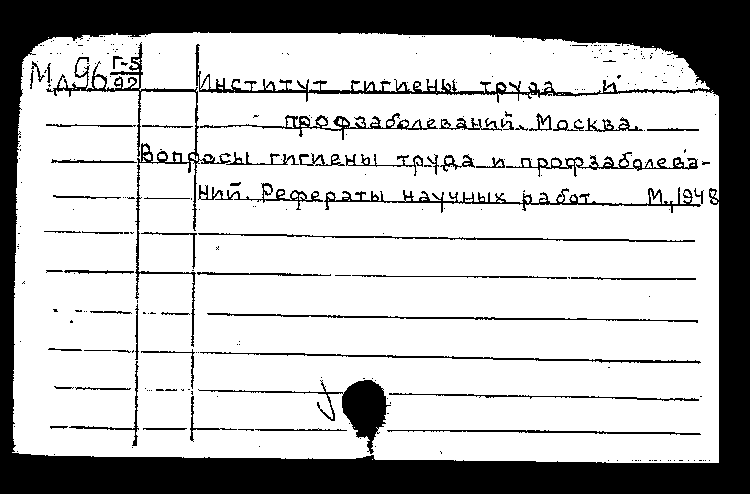 Мд96 Г-5/92
Институт гигиены труда и
профзаболеваний. Москва.
Вопросы гигиены труда и профзаболева-
ний. Рефераты научных работ. М., 1948